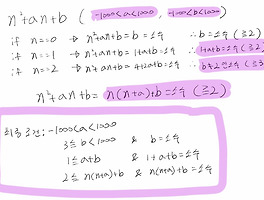 n²+an+b ( -1000<a<1000, -1000<b<1000 )
if n==0 → n²+an+b = b = 소수 ∴ b = 소수 (≥2)
if n==1 → n²+an+b = 1+a+b = 소수 ∴ 1+a+b = 소수 (≥2)
if n==2 → n²+an+b = 4+2a+b = 소수
n²+an+b = n(n+a)+b = 소수 (≥2)
최종 조건: -1000<a<1000
3≤b<1000 & b=소수
1≤a+b & 1+a+b=소수
2≤n(n+a)+b & n(n+a)+b=소수